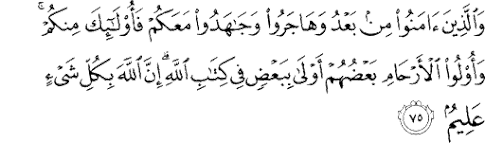 وَٱلَّذِينَ ءَامَنُوا۟ مِنۢ بَعْدُ وَهَاجَرُوا۟ وَجَٰهَدُوا۟ مَعَكُمْ فَأُو۟لَٰٓئِكَ مِنكُمْ ۚ
وَأُو۟لُوا۟ ٱلْأَرْحَامِ بَعْضُهُمْ أَوْلَىٰ بِبَعْضٍ فِى كِتَٰبِ ٱللَّهِ ۗ إِنَّ ٱللَّهَ بِكُلِّ شَىْءٍ
عَلِيمٌۢ ﴿٧٥﴾